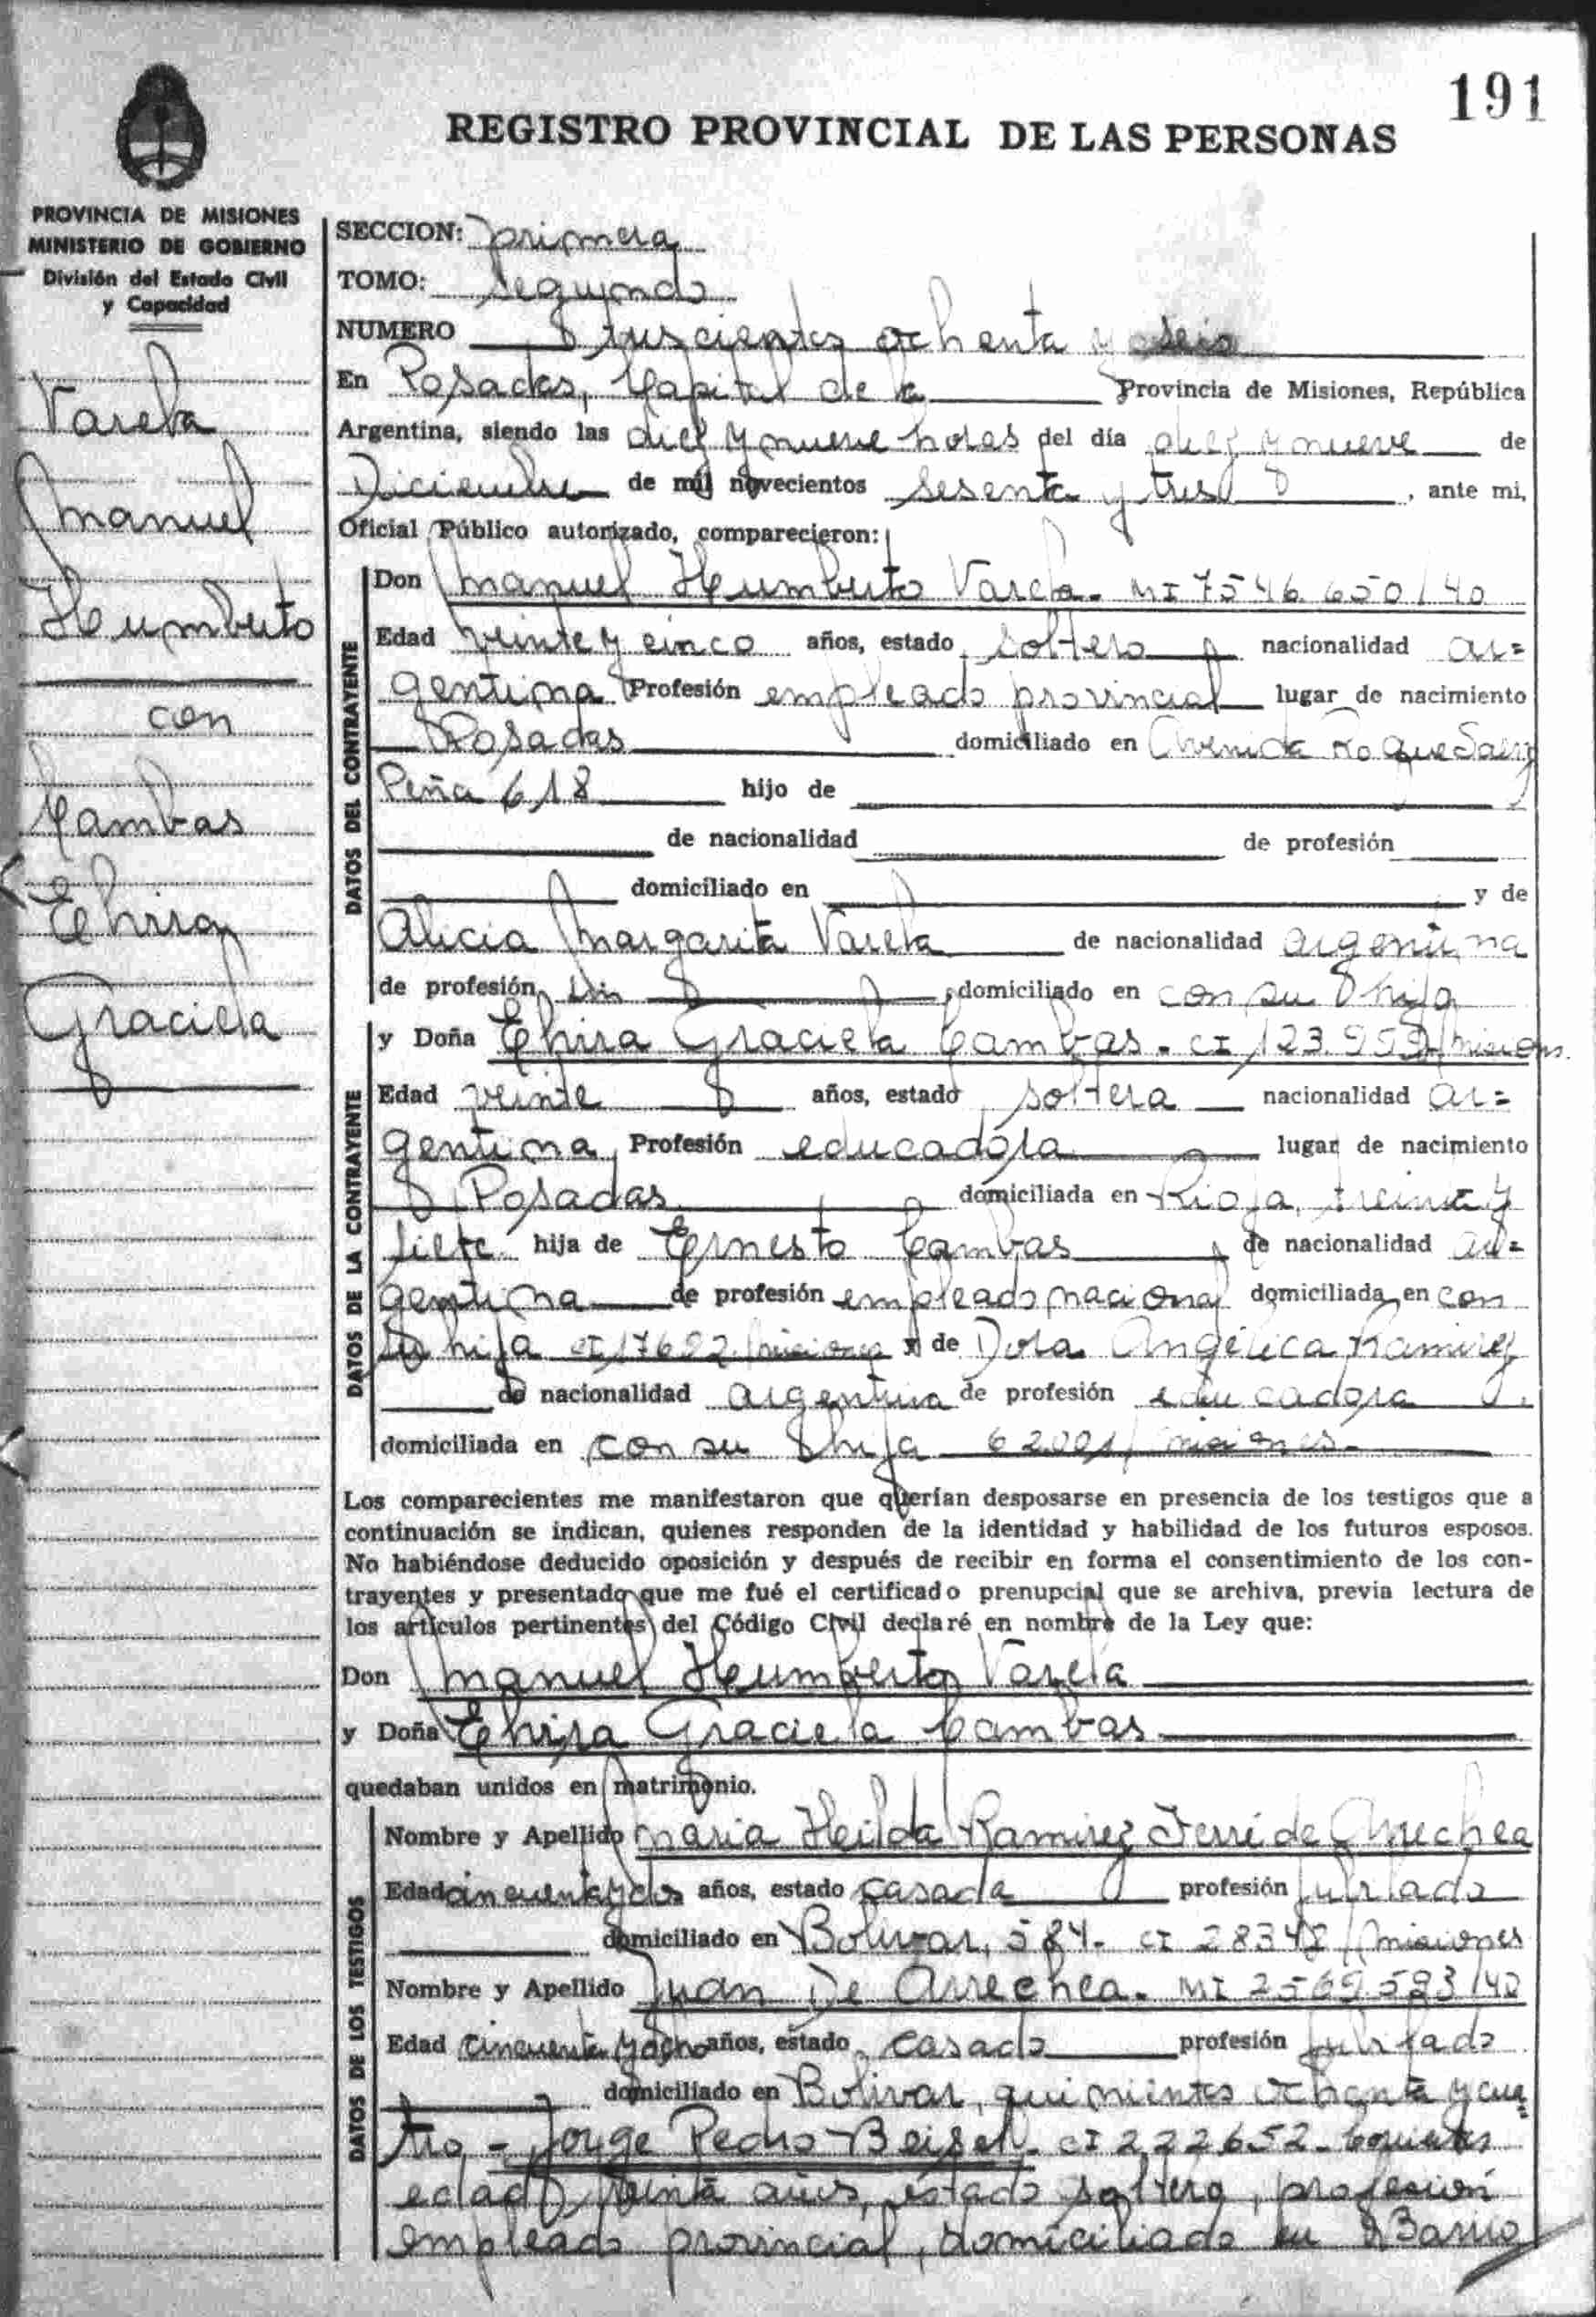 191
REGISTRO PROVINCIAL DE LAS PERSONAS
PROVINCIA DE MISIONES
MINISTERIO DE GOBIERNO
División del Estado Civil
y Capacidad
Varela
Manuel
Humberto
con
Cambas
Elvira
Graciela
SECCION: primera
TOMO: segundo
NUMERO trescientos ochenta y seis
En Posadas, Capital de la Provincia de Misiones, República
Argentina, siendo las diez y nueve horas del día diez y nueve de
Diciembre de mil novecientos sesenta y tres, ante mi,
Oficial Público autorizado, comparecieron:
DATOS DEL CONTRAYENTE
Don Manuel Humberto Varela - MI 7546.650/40
Edad veinte y cinco años, estado soltero nacionalidad ar=
gentina Profesión empleado provincial lugar de nacimiento
Posadas domiciliado en Avenida Roque Saenz
Peña 618 hijo de
de nacionalidad de profesión
domiciliado en y de
Alicia Margarita Varela de nacionalidad argentina
de profesión sin domiciliado en con su hija
DATOS DE LA CONTRAYENTE
y Doña Elvira Graciela Cambas - CI 123.959/Misiones.
Edad veinte años, estado soltera nacionalidad ar=
gentina Profesión educadora lugar de nacimiento
Posadas domiciliada en Rioja, treinta y
siete hija de Ernesto Cambas de nacionalidad ar=
gentina de profesión empleado nacional domiciliada en con
su hija CI 17692/Misiones y de Dora Angélica Ramirez
de nacionalidad argentina de profesión educadora
domiciliada en con su hija 62001/Misiones-
Los comparecientes me manifestaron que querían desposarse en presencia de los testigos que a
continuación se indican, quienes responden de la identidad y habilidad de los futuros esposos.
No habiéndose deducido oposición y después de recibir en forma el consentimiento de los con-
trayentes y presentado que me fué el certificado prenupcial que se archiva, previa lectura de
los artículos pertinentes del Código Civil declaré en nombre de la Ley que:
Don Manuel Humberto Varela
y Doña Elvira Graciela Cambas
quedaban unidos en matrimonio.
DATOS DE LOS TESTIGOS
Nombre y Apellido Maria Heilda Ramirez de Arrechea
Edad cincuenta y dos años, estado casada profesión jubilado
domiciliado en Bolivar, 584- CI 28348/Misiones
Nombre y Apellido Juan De Arrechea - MI 2569.593/42
Edad cincuenta y ocho años, estado casado profesión jubilado
domiciliado en Bolivar, quinientos ochenta y cua
tro - Jorge Pedro Beisel - CI 222652- Corrientes
edad treinta años, estado soltero, profesión
empleado provincial, domiciliado en Barrio